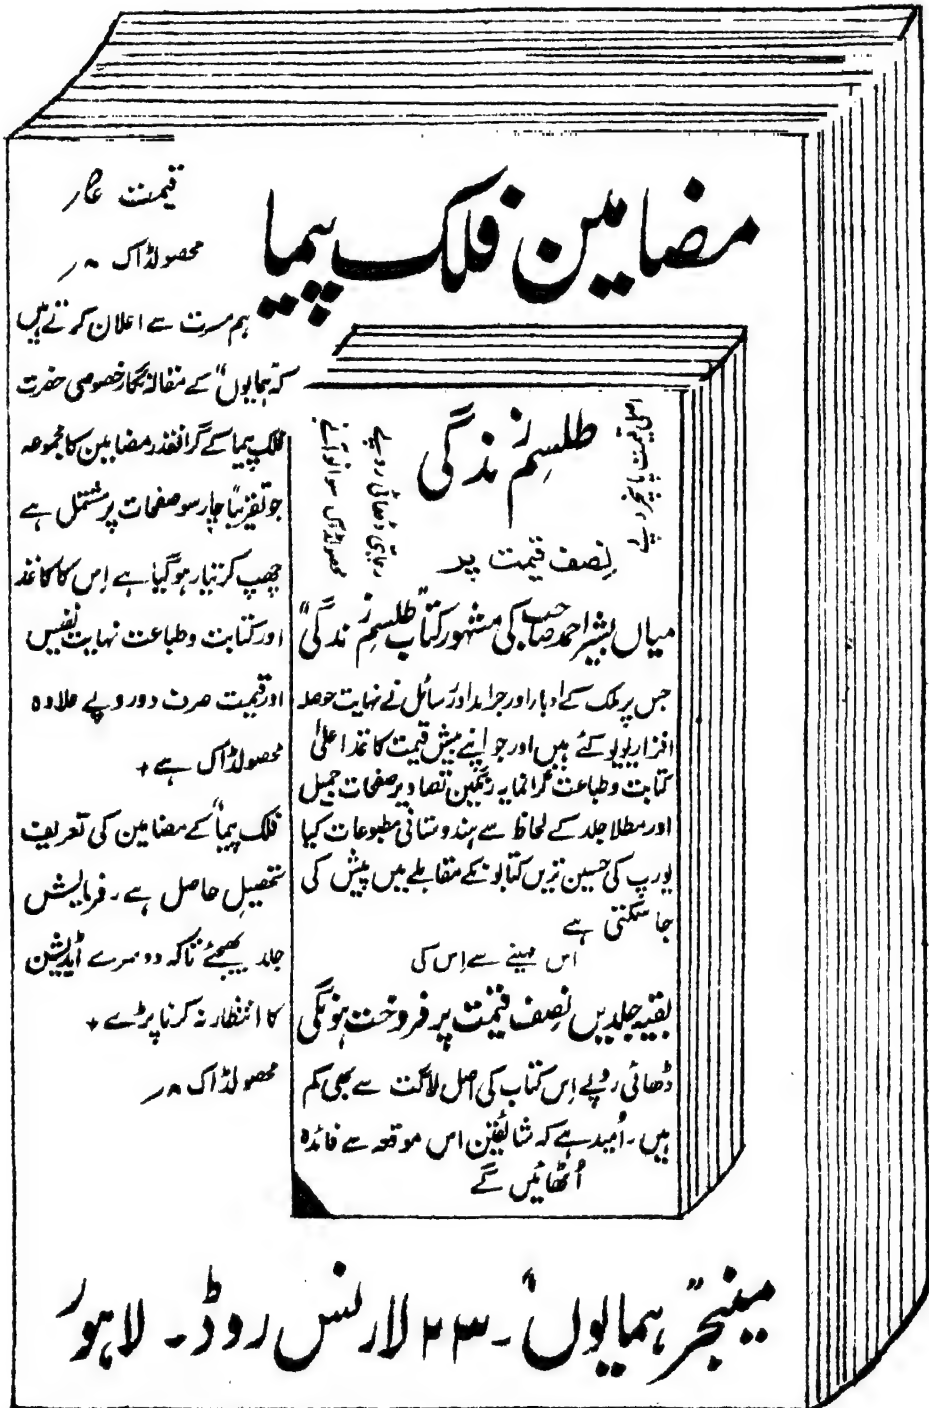 مضامین فلک پیما
قیمت عہ/
محصولڈاک ۸/
ہم مسرت سے اعلان کرتے ہیں
کہ "ہمایوں" کے مقالہ نگار خصوصی حضرت
فلک پیما کے گرانقدر مضامین کا مجموعہ
جو تقریباً چار سو صفحات پر مشتمل ہے
چھپ کر تیار ہو گیا ہے اِس کا کاغذ
اور کتابت و طباعت نہایت نفیس
اور قیمت صرف دو روپے علاوہ
محصولڈاک ہے +
"فلک پیما" کے مضامین کی تعریف
تحصیلِ حاصل ہے ۔ فرمایش
جلد بھیجئے تاکہ دوسرے اڈیشن
کا انتظار نہ کرنا پڑے +
محصولڈاک ۸/
طلسمِ زندگی
رعایتی ڈھائی روپے
محصولڈاک سوا نو آنے
نِصف قیمت پر
میاں بشیر احمد صاحب کی مشہور کتاب "طلسمِ زندگی"
جس پر ملک کے ادبا اور جراید اور رسائل نے نہایت حوصلہ
افزا ریویو کئے ہیں اور جو اپنے بیش قیمت کاغذ اعلیٰ
کتابت و طباعت گرانمایہ رنگین تصاویر صفحات جمیل
اور مطلا جلد کے لحاظ سے ہندوستانی مطبوعات کیا
یورپ کی حسین ترین کتابوں کے مقابلے میں پیش کی
جا سکتی ہے
اس مہینے سے اِس کی
بقیہ جلدیں نِصف قیمت پر فروخت ہونگی
ڈھائی روپے اِس کتاب کی اصل لاگت سے بھی کم
ہیں ۔ اُمید ہے کہ شائقین اس موقعہ سے فائدہ
اُٹھائیں گے
مینیجر "ہمایوں" ۔ ۲۳ لارنس روڈ ۔ لاہور